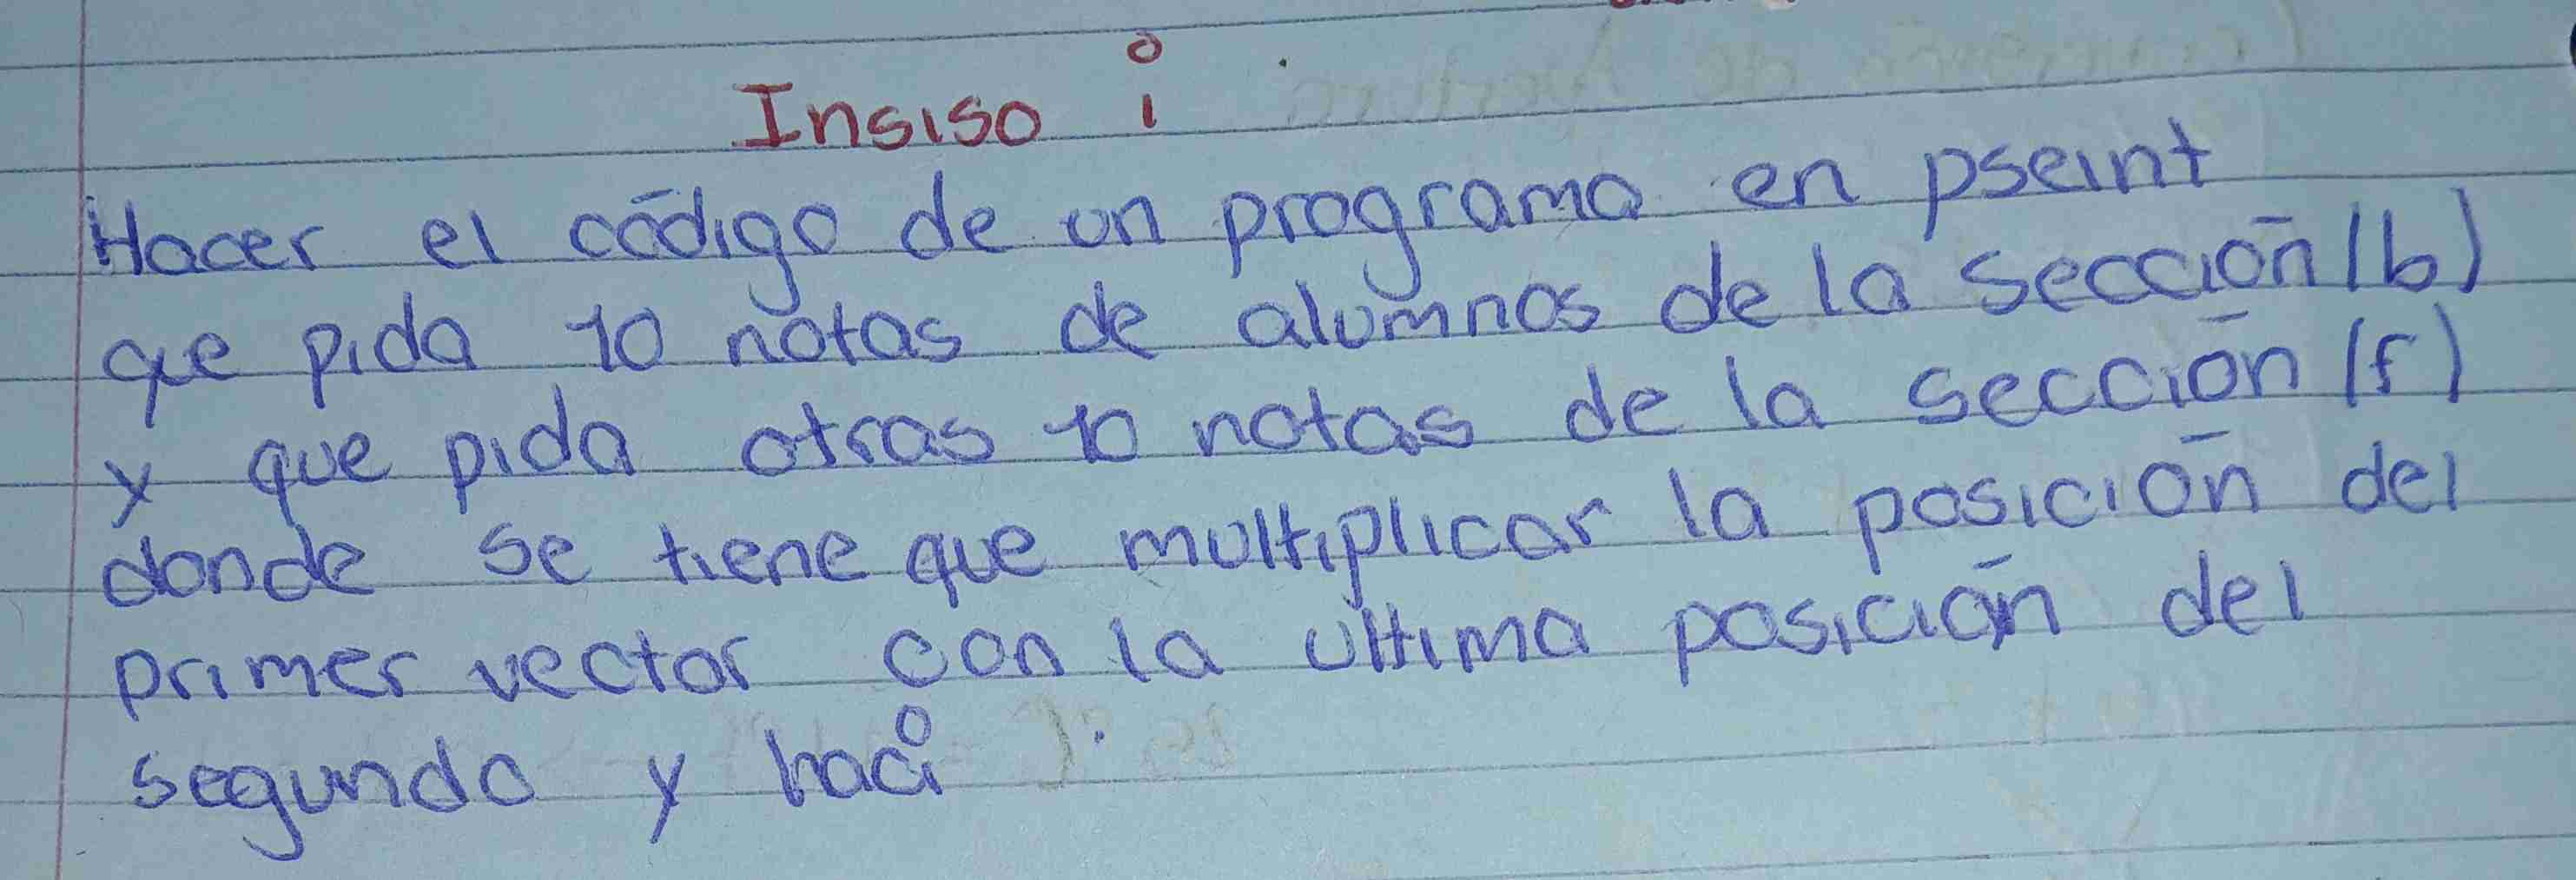 Insiso i
Hacer el código de un programa en pseint
qe pida 10 notas de alumnos de la sección (b)
y que pida otras 10 notas de la sección (f)
donde se tiene que multiplicar la posición del
primer vector con la ultima posición del
segundo y haci